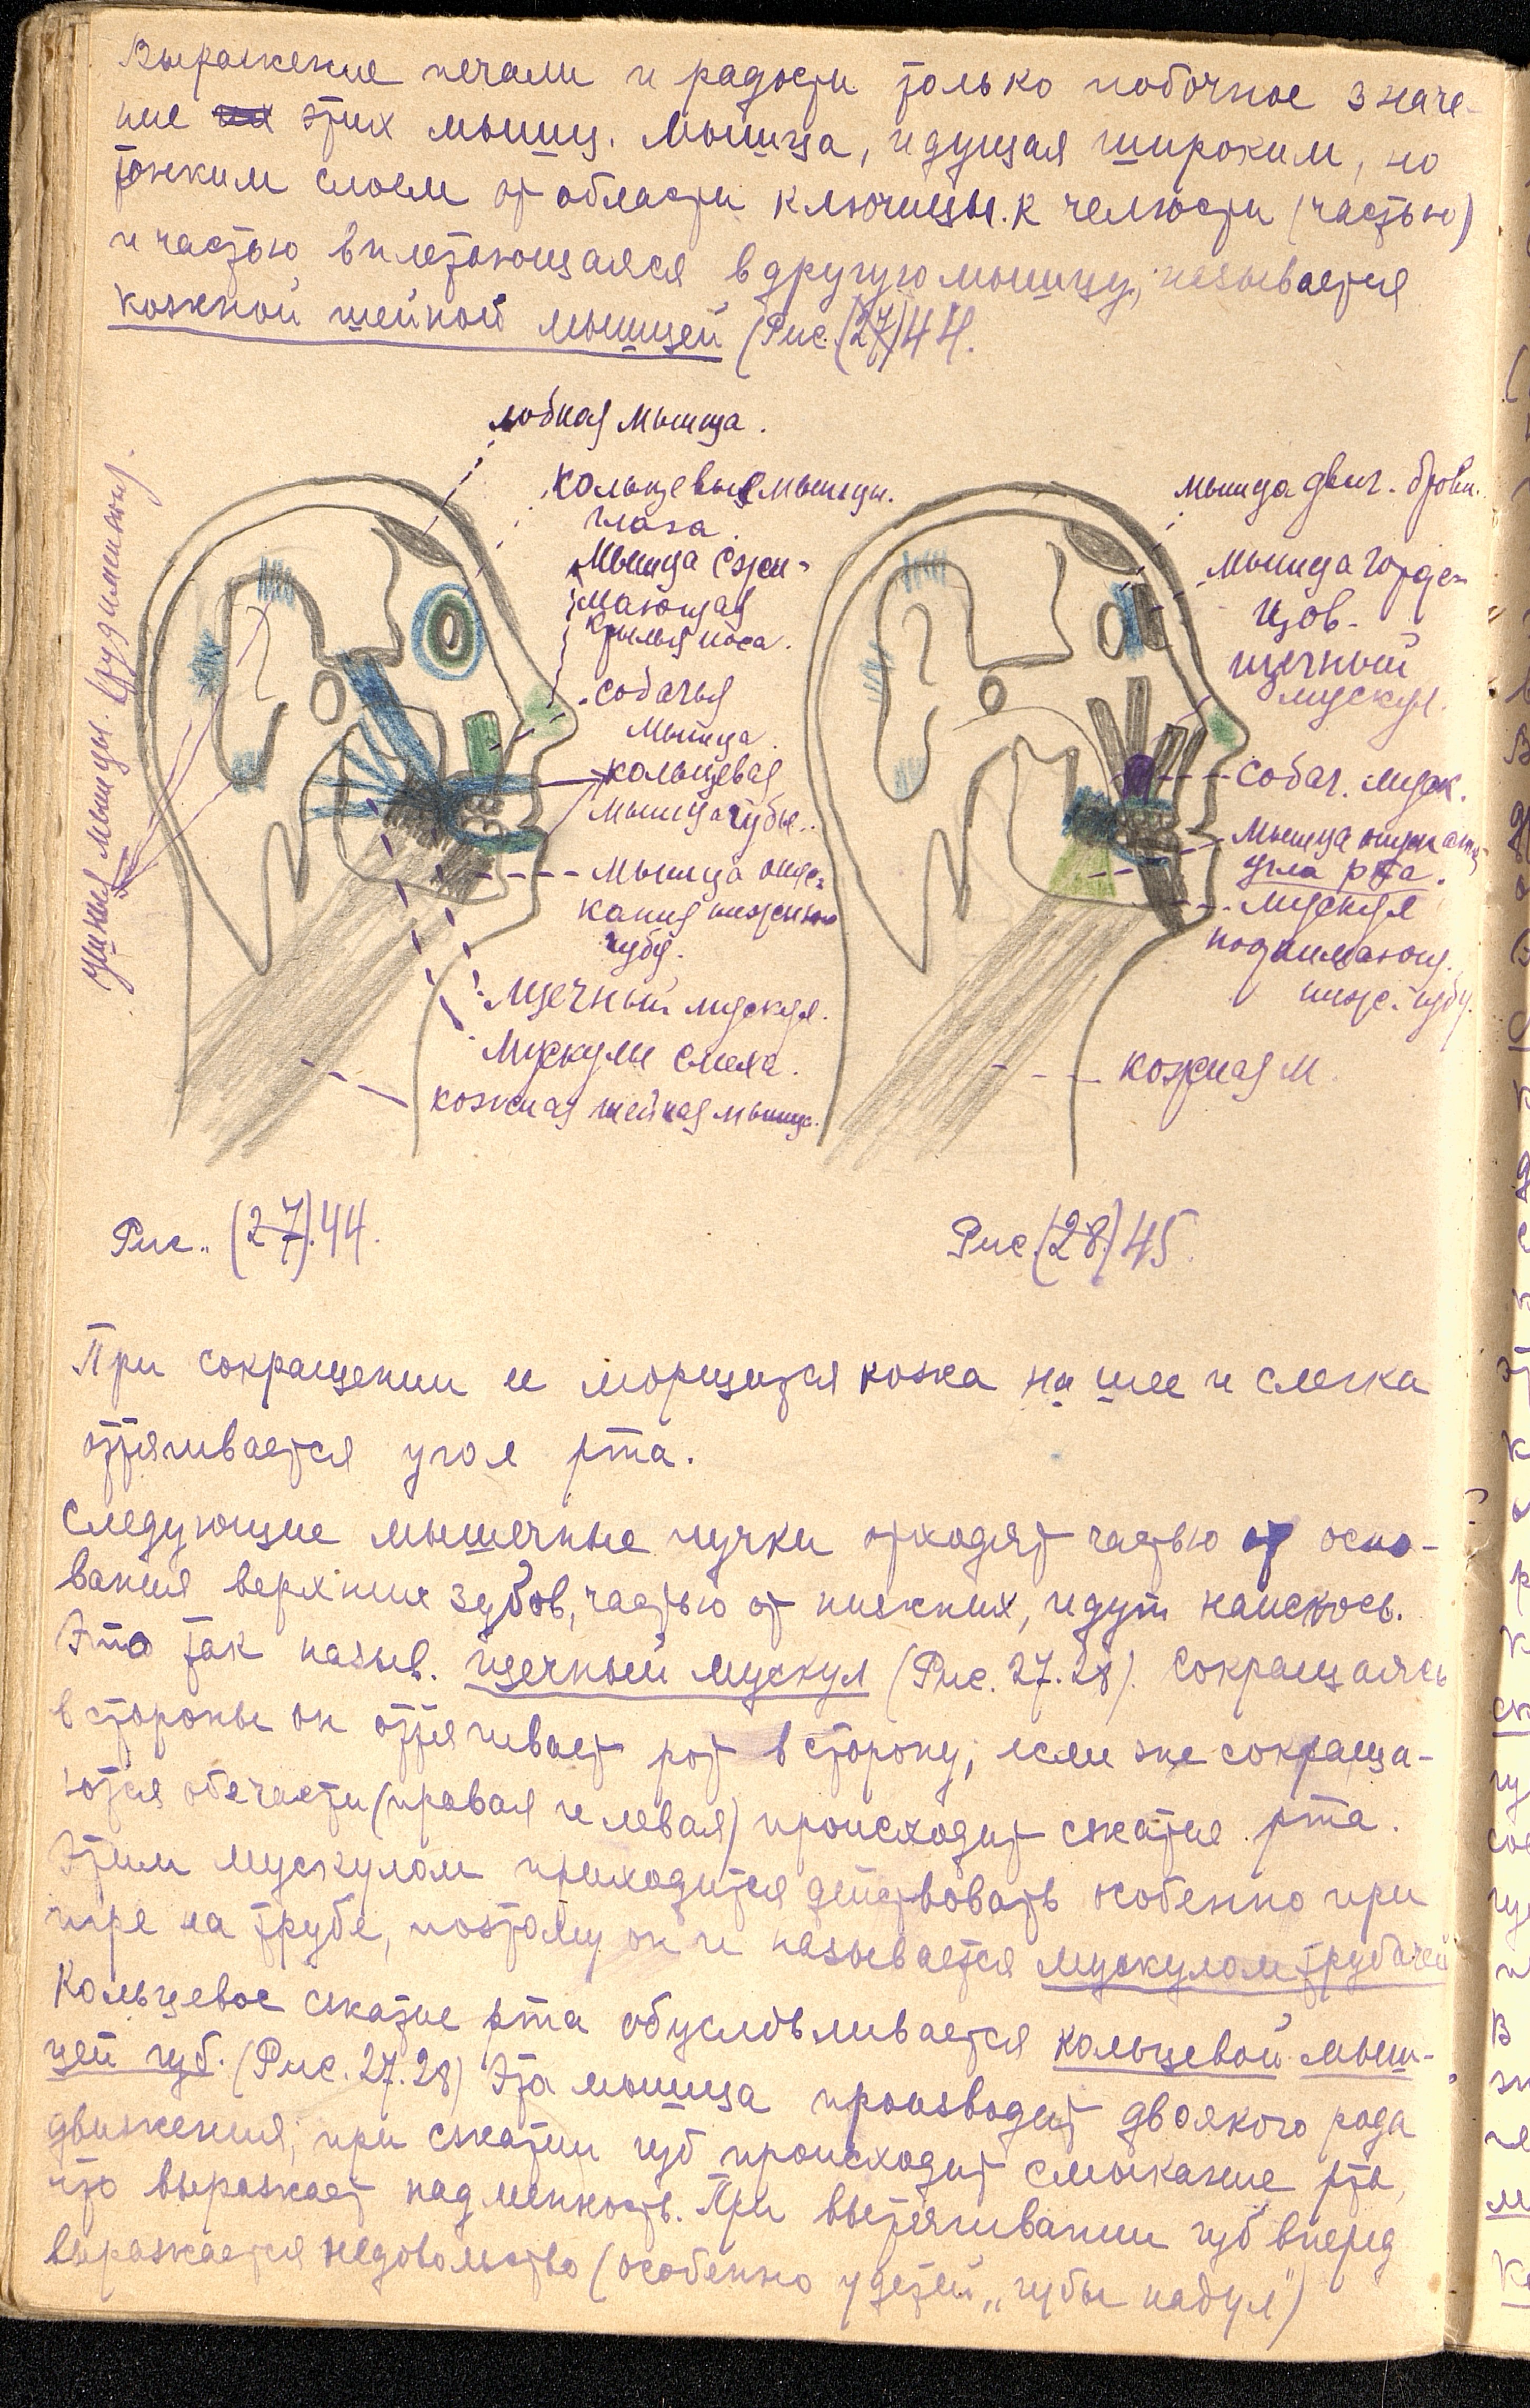 Выражение печали и радости только побочное значе-
ние этих мышц. Мышца, идущая широким, но
тонким слоем от области ключицы к челюсти (частью)
и частью вплетающаяся в другую мышцу, называется
кожной шейной мышцей (Рис. (27) 44.
лобная мышца.
кольцевые мышцы.
глаза.
мышца сжи-
мающая
крылья носа.
собачья
мышца.
кольцевая
мышца губы.
мышца опус-
кания нижнюю
губу.
щечный мускул.
Мускулы смеха.
кожная шейная мышц.
ушные мышцы. (рудименты).
мышца движ. брови.
мышца горде-
цов.
щечный
мускул.
собач. муск.
мышца опускающ.
угла рта.
мускул
поднимающ.
ниж. губу.
кожная м.
Рис. (27). 44.
Рис. (28) 45.
При сокращении ее морщится кожа на шее и слегка
оттягивается угол рта.
Следующие мышечные пучки отходят частью от осно-
вания верхних зубов, частью от нижних, идут наискось.
Это так назыв. щечный мускул (Рис. 27. 28). Сокращаясь
в стороны он оттягивает рот в сторону; если же сокраща-
ются обе части (правая и левая) происходит сжатие рта.
Этим мускулом приходится действовать особенно при
игре на трубе, поэтому он и называется мускулом трубачей
Кольцевое сжатие рта обусловливается кольцевой мыш-
цей губ. (Рис. 27. 28) Эта мышца производит двоякого рода
движения; при сжатии губ происходит смыкание рта,
что выражает надменность. При вытягивании губ вперед
выражается недовольство (особенно у детей „губы надул")